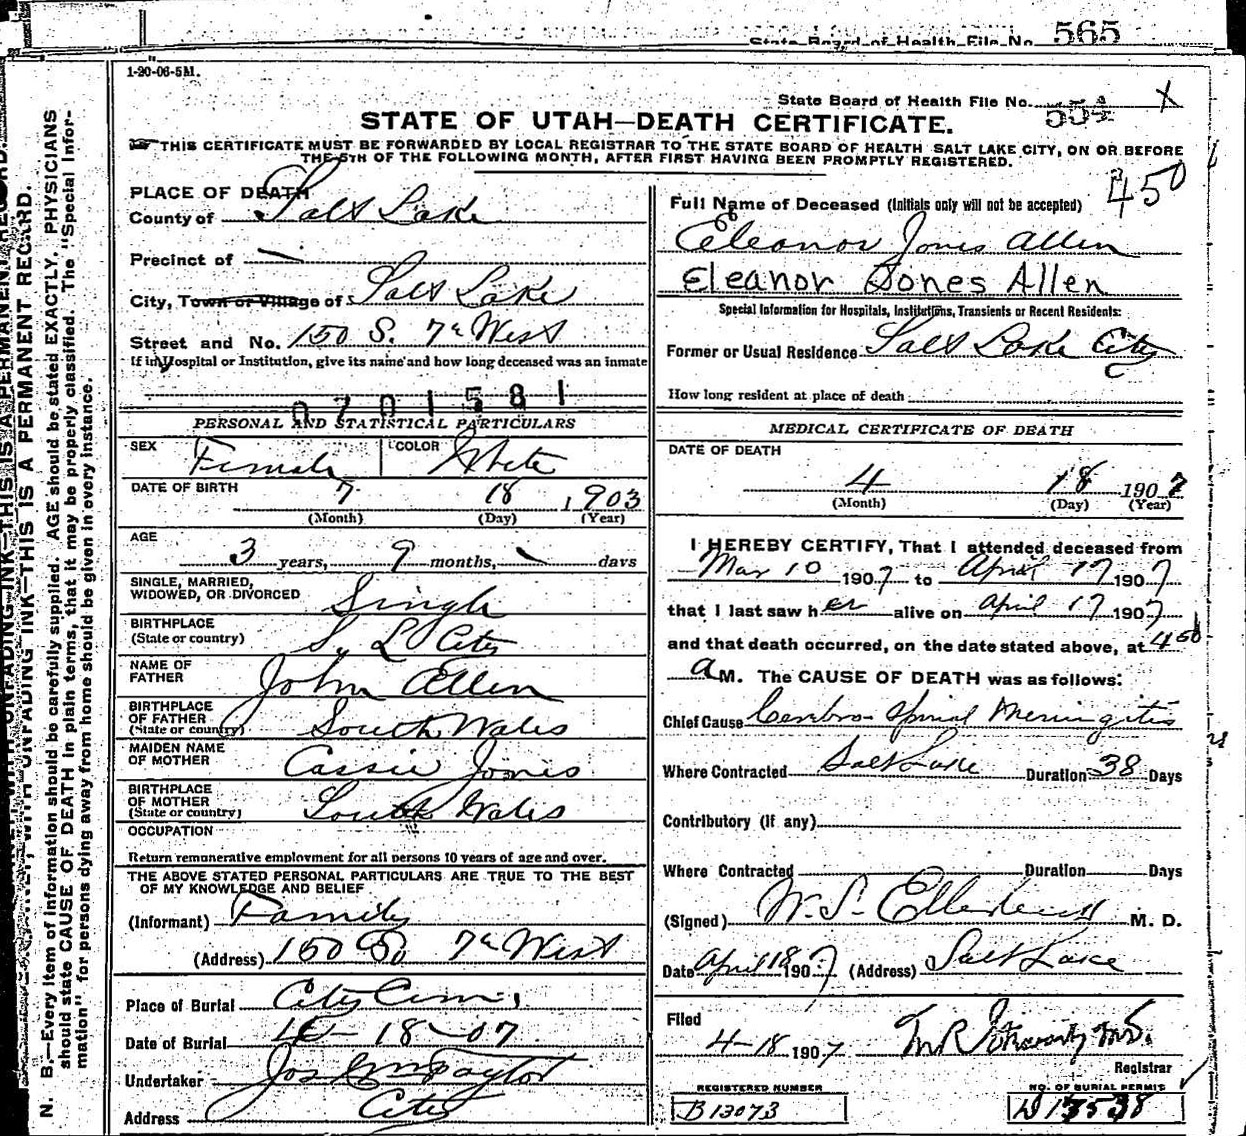 State Board of Health File No. 565
1-20-06-5M.
State Board of Health File No. 554 X
STATE OF UTAH—DEATH CERTIFICATE.
THIS CERTIFICATE MUST BE FORWARDED BY LOCAL REGISTRAR TO THE STATE BOARD OF HEALTH SALT LAKE CITY, ON OR BEFORE
THE 5TH OF THE FOLLOWING MONTH, AFTER FIRST HAVING BEEN PROMPTLY REGISTERED.
N. B.—Every item of information should be carefully supplied. AGE should be stated EXACTLY. PHYSICIANS
should state CAUSE OF DEATH in plain terms, that it may be properly classified. The "Special Infor-
mation" for persons dying away from home should be given in every instance.
THIS IS A PERMANENT RECORD.
PLACE OF DEATH
County of Salt Lake
Precinct of —
City, Town or Village of Salt Lake
Street and No. 150 S. 7th West
If in Hospital or Institution, give its name and how long deceased was an inmate
0701581
PERSONAL AND STATISTICAL PARTICULARS
SEX Female COLOR White
DATE OF BIRTH 7 18 1903
(Month) (Day) (Year)
AGE
3 years, 9 months, — days
SINGLE, MARRIED,
WIDOWED, OR DIVORCED Single
BIRTHPLACE
(State or country) S. L City
NAME OF
FATHER John Allen
BIRTHPLACE
OF FATHER
(State or country) South Wales
MAIDEN NAME
OF MOTHER Cassie Jones
BIRTHPLACE
OF MOTHER
(State or country) South Wales
OCCUPATION
Return remunerative employment for all persons 10 years of age and over.
THE ABOVE STATED PERSONAL PARTICULARS ARE TRUE TO THE BEST
OF MY KNOWLEDGE AND BELIEF
(Informant) Family
(Address) 150 So 7th West
Place of Burial City Cem
Date of Burial 4-18-07
Undertaker Jos Wm Taylor
Address City
450
Full Name of Deceased (Initials only will not be accepted)
Eleanor Jones Allen
Eleanor Jones Allen
Special Information for Hospitals, Institutions, Transients or Recent Residents:
Former or Usual Residence Salt Lake City
How long resident at place of death
MEDICAL CERTIFICATE OF DEATH
DATE OF DEATH
4 18 1907
(Month) (Day) (Year)
I HEREBY CERTIFY, That I attended deceased from
Mar 10 1907 to April 17 1907
that I last saw her alive on April 17 1907
and that death occurred, on the date stated above, at 4 50
A M. The CAUSE OF DEATH was as follows:
Chief Cause Cerebro-Spinal Meningitis
Where Contracted Salt Lake Duration 38 Days
Contributory (if any)
Where Contracted Duration Days
(Signed) W. S. M. D.
Date April 18 1907 (Address) Salt Lake
Filed
4-18 1907 M.D.
Registrar
REGISTERED NUMBER NO. OF BURIAL PERMIT
B 13073 D 13538